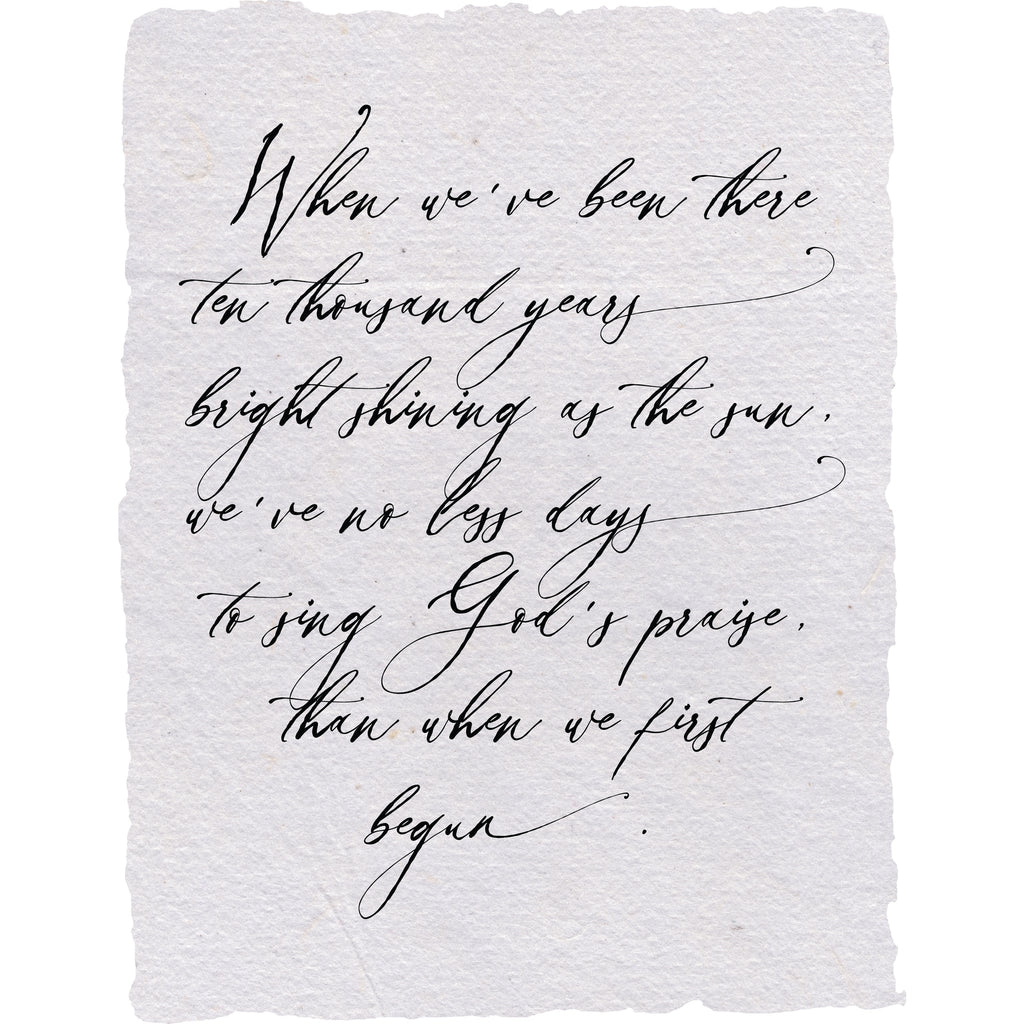 When we've been there
ten thousand years
bright shining as the sun,
we've no less days
to sing God's praise,
than when we first
begun .